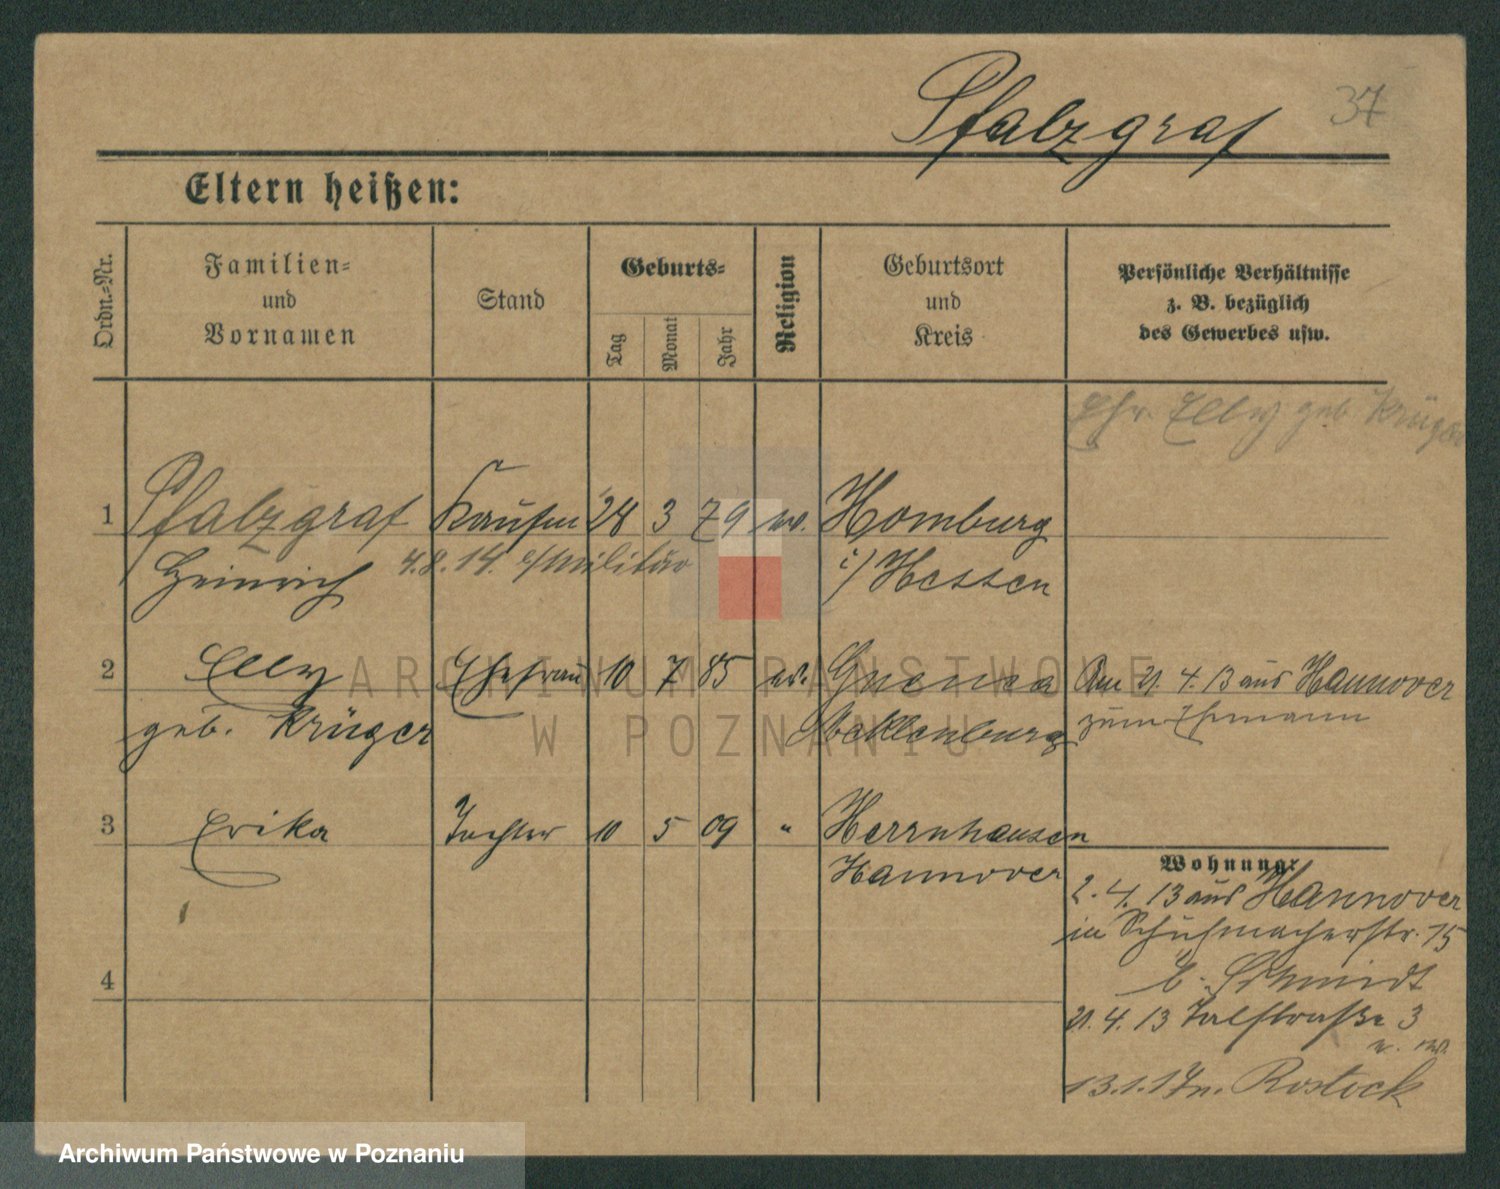 Pfalzgraf
37
Eltern heißen:
Ordn.-Nr.
Familien-
und
Vornamen
Stand
Geburts-
Tag
Monat
Jahr
Religion
Geburtsort
und
Kreis
Persönliche Verhältnisse
z. B. bezüglich
des Gewerbes usw.
Ehfr. Elly geb. Krüger
1 Pfalzgraf Kaufm 28 3 79 ev. Homburg
Heinrich 4.8.14. z/Militär i/Hessen
2 Elly Ehefrau 10 7 85 ev. Gnoien Am 21. 4. 13 aus Hannover
geb. Krüger Mecklenburg zum Ehemann
3 Erika Tochter 10 5 09 " Herrnhausen
Hannover
Wohnung:
2. 4. 13 aus Hannover
in Schuhmacherstr. 15
b. Schmidt
21. 4. 13 Talstraße 3
13.1.17 n. Rostock
4
ARCHIWUM PAŃSTWOWE
W POZNANIU
Archiwum Państwowe w Poznaniu